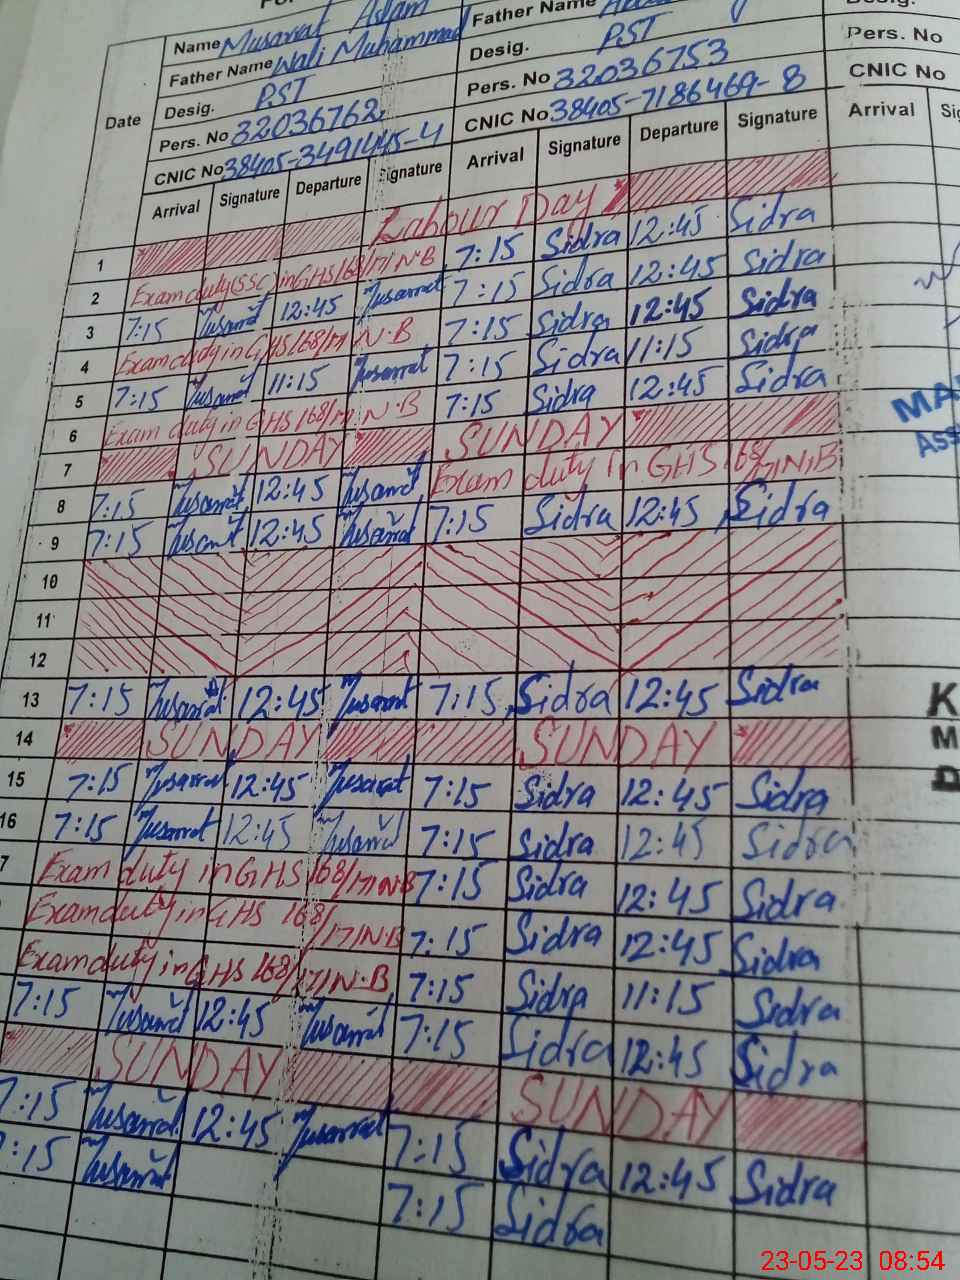 Name Musarrat Aslam
Father Name Wali Muhammad
Desig. PST
Pers. No 32036762
CNIC No 38405-3491445-4
Father Name
Desig. PST
Pers. No 32036753
CNIC No 38405-7186469-8
Desig.
Pers. No
CNIC No
Date Arrival Signature Departure Signature Arrival Signature Departure Signature Arrival
1 Labour Day
2 Exam duty (SSC) in GHS 168/171 N.B 7:15 Sidra 12:45 Sidra
3 7:15 Musarrat 12:45 Musarrat 7:15 Sidra 12:45 Sidra
4 Exam duty in GHS 168/171 N.B 7:15 Sidra 12:45 Sidra
5 7:15 Musarrat 11:15 Musarrat 7:15 Sidra 11:15 Sidra
6 Exam duty in GHS 168/171 N.B 7:15 Sidra 12:45 Sidra
7 SUNDAY SUNDAY
8 7:15 Musarrat 12:45 Musarrat Exam duty in GHS 168/171 N.B
9 7:15 Musarrat 12:45 Musarrat 7:15 Sidra 12:45 Sidra
10
11
12
13 7:15 Musarrat 12:45 Musarrat 7:15 Sidra 12:45 Sidra
14 SUNDAY SUNDAY
15 7:15 Musarrat 12:45 Musarrat 7:15 Sidra 12:45 Sidra
16 7:15 Musarrat 12:45 Musarrat 7:15 Sidra 12:45 Sidra
7 Exam duty in GHS 168/171 N.B 7:15 Sidra 12:45 Sidra
Exam duty in GHS 168/171 N.B 7:15 Sidra 12:45 Sidra
Exam duty in GHS 168/171 N.B 7:15 Sidra 11:15 Sidra
7:15 Musarrat 12:45 Musarrat 7:15 Sidra 12:45 Sidra
SUNDAY SUNDAY
7:15 Musarrat 12:45 Musarrat 7:15 Sidra 12:45 Sidra
7:15 Musarrat 7:15 Sidra
23-05-23 08:54